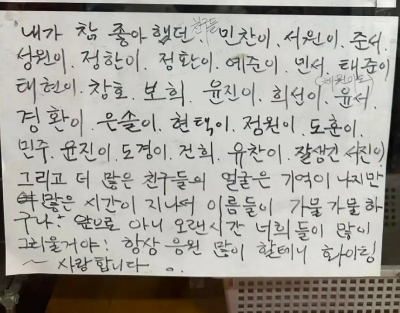 내가 참 좋아했던 친구들 민찬이. 서원이. 준서.
성원이. 정한이. 정환이. 예준이. 민서. 태준이
태현이. 창호. 보희. 윤진이. 희선이. (채원이도) 윤서.
경환이. 은솔이. 현택이. 정원이. 도훈이.
민주. 윤진이. 도경이. 건희. 유찬이. 잘생긴 서진이.
그리고 더 많은 친구들의 얼굴은 기억이 나지만
많은 시간이 지나서 이름들이 가물가물하
구나. 앞으로 아니 오랜시간 너희들이 많이
그리울거야! 항상 응원 많이 할테니 화이팅
~ 사랑합니다.